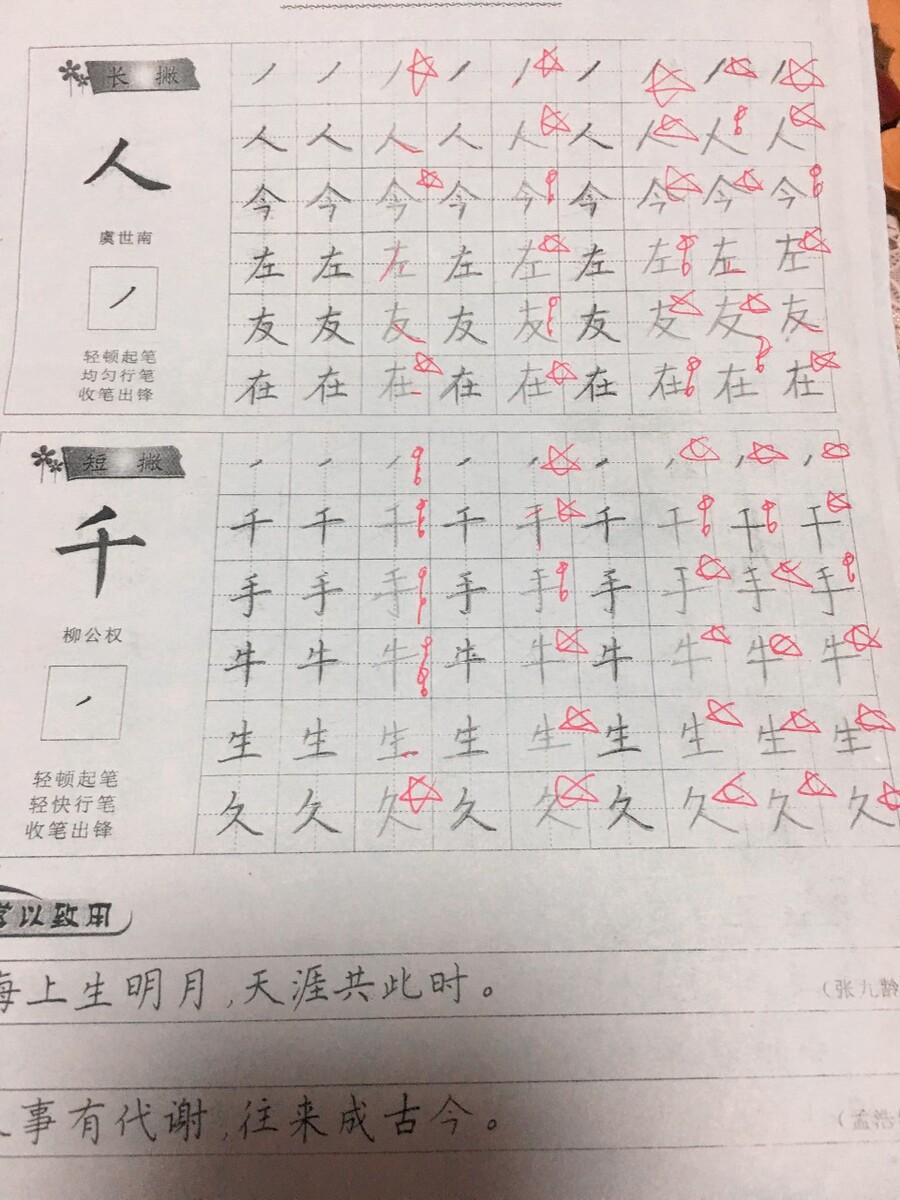 长撇
人
虞世南
轻顿起笔
均匀行笔
收笔出锋
丿 丿 丿 丿 丿 丿 丿 丿 丿
人 人 人 人 人 人 人 人 人
今 今 今 今 今 今 今 今 今
左 左 左 左 左 左 左 左 左
友 友 友 友 友 友 友 友 友
在 在 在 在 在 在 在 在 在
短撇
千
柳公权
轻顿起笔
轻快行笔
收笔出锋
丿 丿 丿 丿 丿 丿 丿 丿 丿
千 千 千 千 千 千 千 千 千
手 手 手 手 手 手 手 手 手
牛 牛 牛 牛 牛 牛 牛 牛 牛
生 生 生 生 生 生 生 生 生
久 久 久 久 久 久 久 久 久
学以致用
海上生明月,天涯共此时。
(张九龄
人事有代谢,往来成古今。
(孟浩